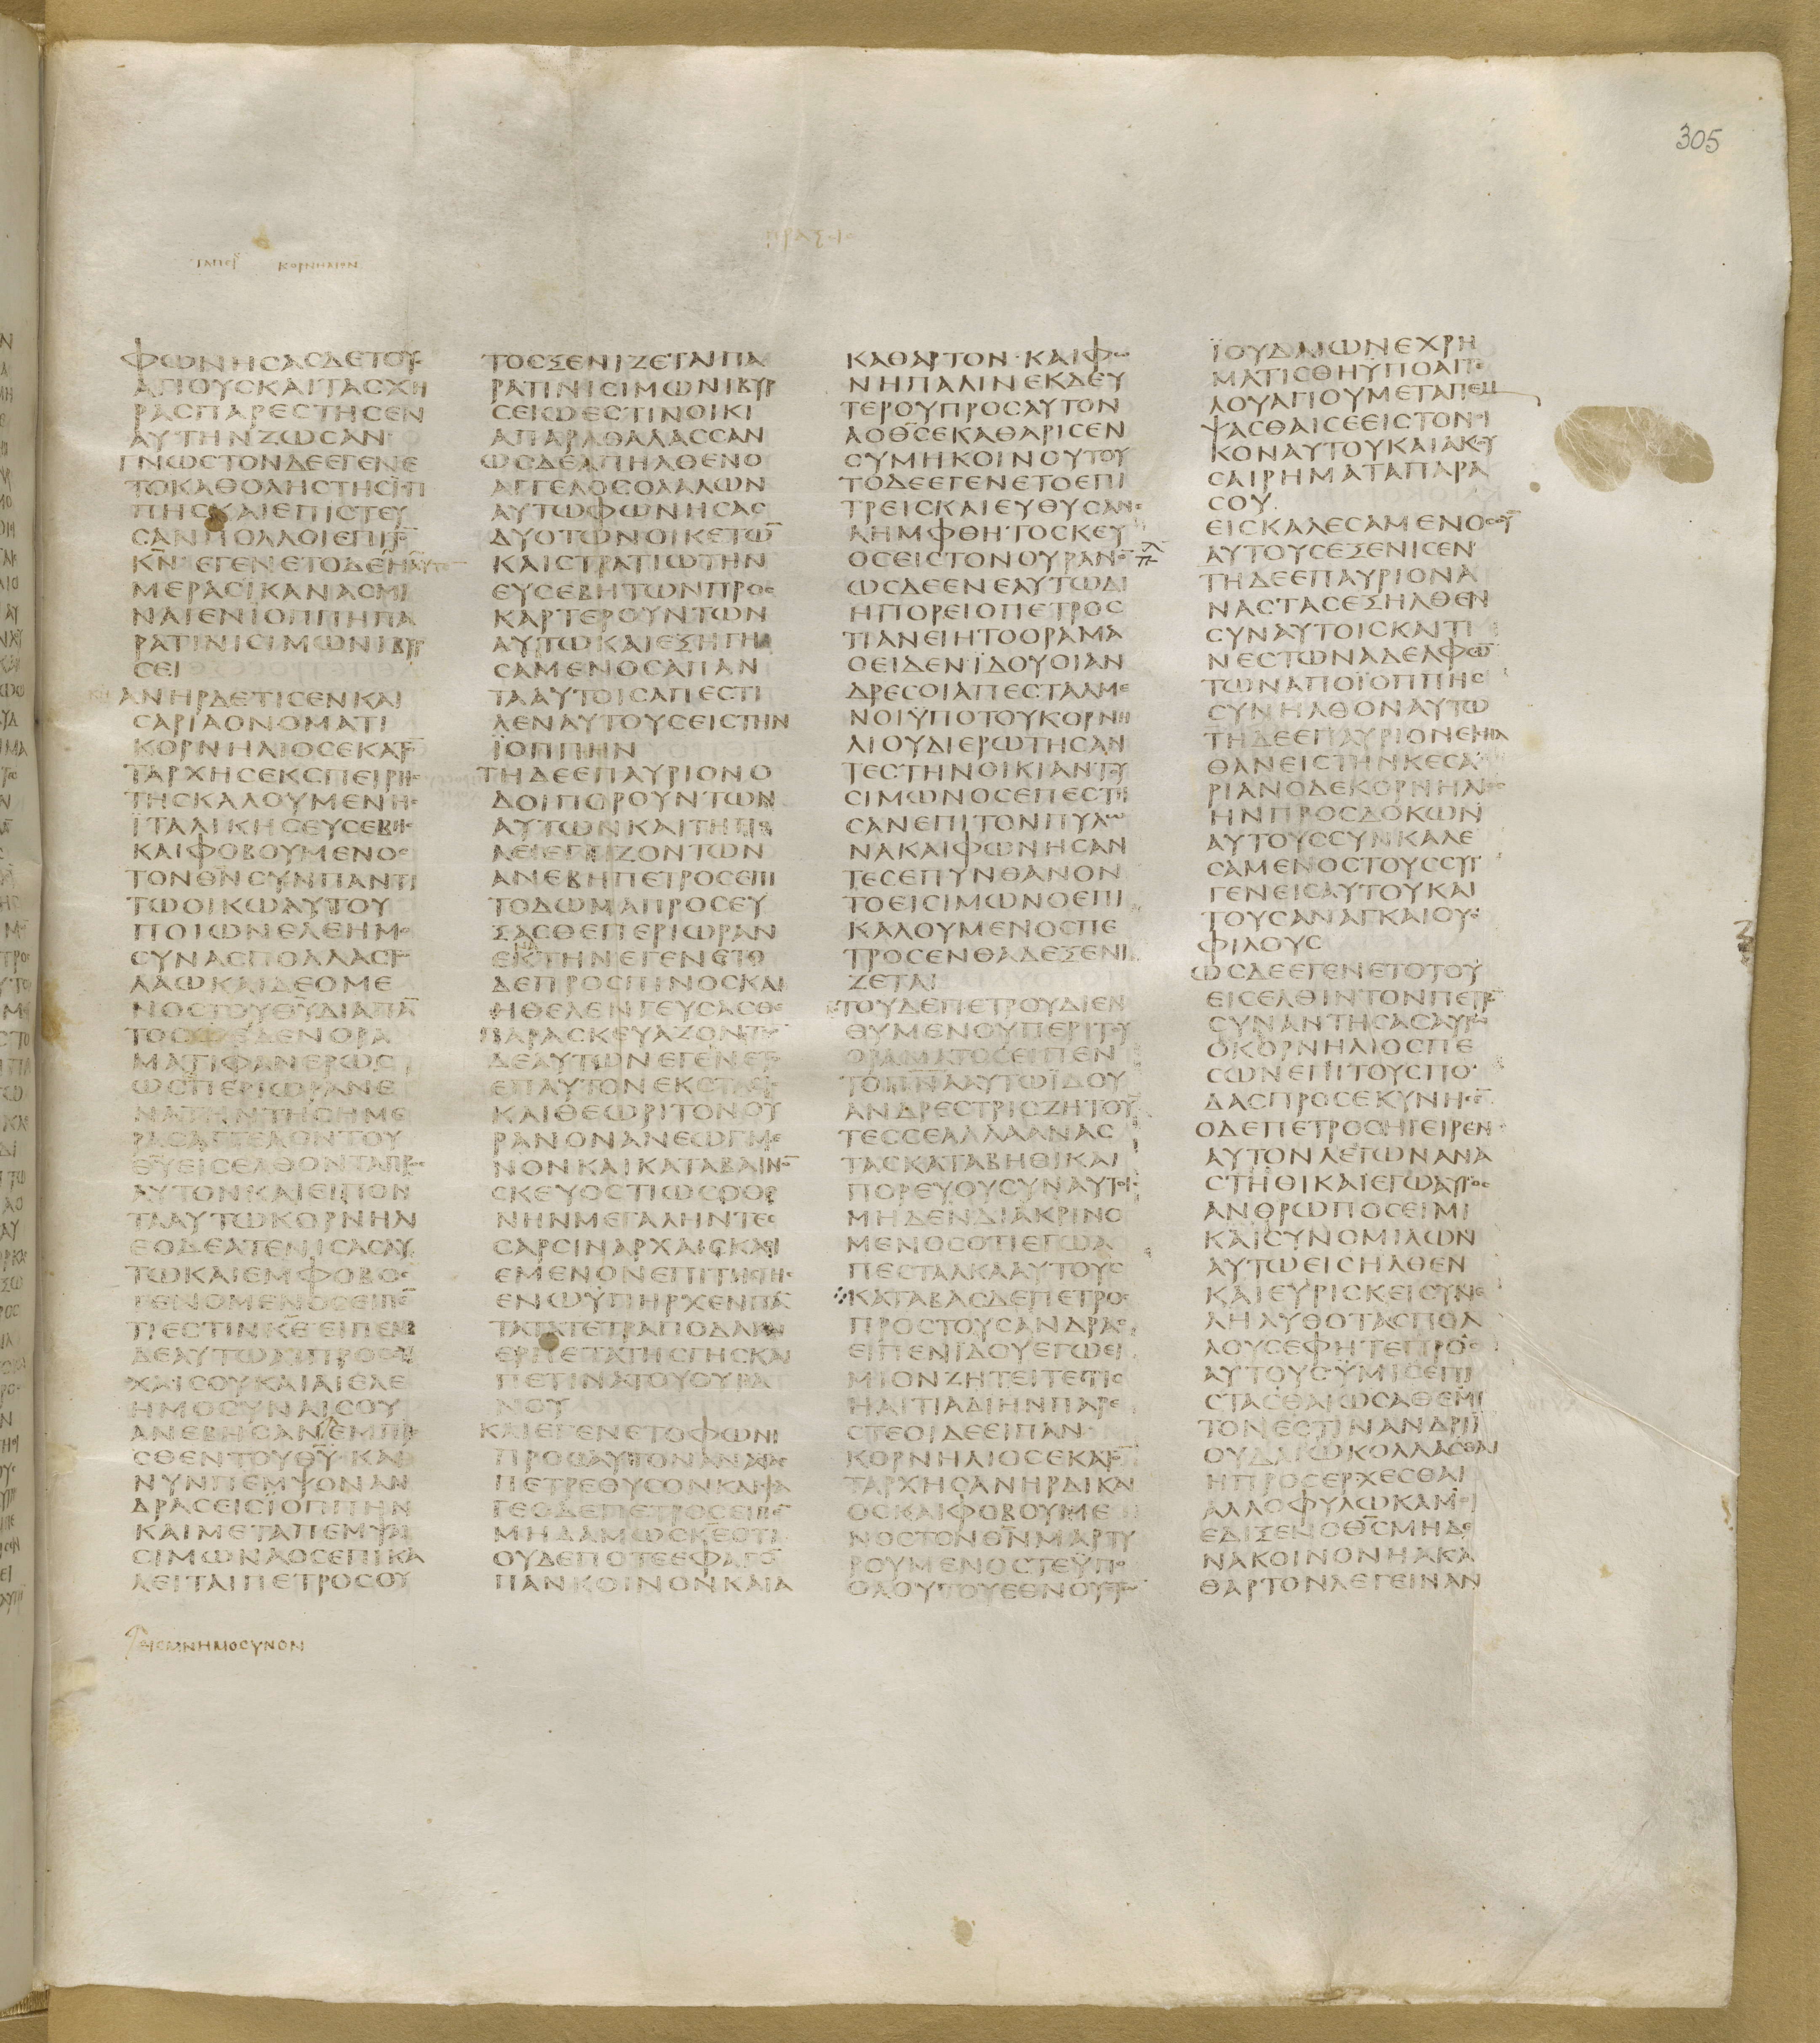 305
ΠΡΑΞΙϹ
ΚΟΡΝΗΛΙΟΝ
ΦΩΝΗϹΑϹΔΕΤΟΥ
ΑΓΙΟΥϹΚΑΙΤΑϹΧΗ
ΡΑϹΠΑΡΕϹΤΗϹΕΝ
ΑΥΤΗΝΖΩϹΑΝ
ΓΝΩϹΤΟΝΔΕΕΓΕΝΕ
ΤΟΚΑΘΟΛΗϹΤΗϹΪΟΠ
ΠΗϹΚΑΙΕΠΙϹΤΕΥ
ϹΑΝΠΟΛΛΟΙΕΠΙΤΟ̅
ΚΝ̅ ΕΓΕΝΕΤΟΔΕΗ
ΜΕΡΑϹΪΚΑΝΑϹΜΙ
ΝΑΙΕΝΙΟΠΠΗΠΑ
ΡΑΤΙΝΙϹΙΜΩΝΙΒΥΡ
ϹΕΙ
ΑΝΗΡΔΕΤΙϹΕΝΚΑΙ
ϹΑΡΙΑΟΝΟΜΑΤΙ
ΚΟΡΝΗΛΙΟϹΕΚΑΤΟ̅
ΤΑΡΧΗϹΕΚϹΠΕΙΡΗϹ
ΤΗϹΚΑΛΟΥΜΕΝΗϹ
ΪΤΑΛΙΚΗϹΕΥϹΕΒΗϹ
ΚΑΙΦΟΒΟΥΜΕΝΟϹ
ΤΟΝΘΝ̅ϹΥΝΠΑΝΤΙ
ΤΩΟΙΚΩΑΥΤΟΥ
ΠΟΙΩΝΕΛΕΗΜΟ
ϹΥΝΑϹΠΟΛΛΑϹΤΩ
ΛΑΩΚΑΙΔΕΟΜΕ
ΝΟϹΤΟΥΘΥ̅ΔΙΑΠΑ̅
ΤΟϹ ΕΙΔΕΝΟΡΑ
ΜΑΤΙΦΑΝΕΡΩϹ
ΩϹΠΕΡΙΩΡΑΝΕ
ΝΑΤΗΝΤΗϹΗΜΕ
ΡΑϹΑΓΓΕΛΟΝΤΟΥ
ΘΥ̅ΕΙϹΕΛΘΟΝΤΑΠΡΟϹ
ΑΥΤΟΝΚΑΙΕΙΠΟΝ
ΤΑΑΥΤΩΚΟΡΝΗΛΙ
ΕΟΔΕΑΤΕΝΙϹΑϹΑΥ
ΤΩΚΑΙΕΜΦΟΒΟϹ
ΓΕΝΟΜΕΝΟϹΕΙΠΕ̅
ΤΙΕϹΤΙΝΚΕ̅ΕΙΠΕΝ
ΔΕΑΥΤΩΑΙΠΡΟϹΕΥ
ΧΑΙϹΟΥΚΑΙΑΙΕΛΕ
ΗΜΟϹΥΝΑΙϹΟΥ
ΑΝΕΒΗϹΑΝΕΜΠΡΟ
ϹΘΕΝΤΟΥΘΥ̅ ΚΑΙ
ΝΥΝΠΕΜΨΟΝΑΝ
ΔΡΑϹΕΙϹΪΟΠΠΗΝ
ΚΑΙΜΕΤΑΠΕΜΨΑΙ
ϹΙΜΩΝΑΟϹΕΠΙΚΑ
ΛΕΙΤΑΙΠΕΤΡΟϹΟΥ
ΕΙϹΜΝΗΜΟϹΥΝΟΝ
ΤΟϹΞΕΝΙΖΕΤΑΙΠΑ
ΡΑΤΙΝΙϹΙΜΩΝΙΒΥΡ
ϹΕΙΩΕϹΤΙΝΟΙΚΙ
ΑΠΑΡΑΘΑΛΑϹϹΑΝ
ΩϹΔΕΑΠΗΛΘΕΝΟ
ΑΓΓΕΛΟϹΟΛΑΛΩΝ
ΑΥΤΩΦΩΝΗϹΑϹ
ΔΥΟΤΩΝΟΙΚΕΤΩ̅
ΚΑΙϹΤΡΑΤΙΩΤΗΝ
ΕΥϹΕΒΗΤΩΝΠΡΟϹ
ΚΑΡΤΕΡΟΥΝΤΩΝ
ΑΥΤΩΚΑΙΕΞΗΓΗ
ϹΑΜΕΝΟϹΑΠΑΝ
ΤΑΑΥΤΟΙϹΑΠΕϹΤΙ
ΛΕΝΑΥΤΟΥϹΕΙϹΤΗΝ
ΪΟΠΠΗΝ
ΤΗΔΕΕΠΑΥΡΙΟΝΟ
ΔΟΙΠΟΡΟΥΝΤΩΝ
ΑΥΤΩΝΚΑΙΤΗΠΟΛΙ
ΛΕΙΕΓΓΙΖΟΝΤΩΝ
ΑΝΕΒΗΠΕΤΡΟϹΕΠΙ
ΤΟΔΩΜΑΠΡΟϹΕΥ
ΞΑϹΘΕΠΕΡΙΩΡΑΝ
ΕΚΤΗΝΕΓΕΝΕΤΟ
ΔΕΠΡΟϹΠΙΝΟϹΚΑΙ
ΗΘΕΛΕΝΓΕΥϹΑϹΘΕ
ΠΑΡΑϹΚΕΥΑΖΟΝΤΩ̅
ΔΕΑΥΤΩΝΕΓΕΝΕΤΟ
ΕΠΑΥΤΟΝΕΚϹΤΑϹΙϹ
ΚΑΙΘΕΩΡΙΤΟΝΟΥ
ΡΑΝΟΝΑΝΕΩΓΜΕ
ΝΟΝΚΑΙΚΑΤΑΒΑΙΝΟ̅
ϹΚΕΥΟϹΤΙΩϹΟΘΟ
ΝΗΝΜΕΓΑΛΗΝΤΕϹ
ϹΑΡϹΙΝΑΡΧΑΙϹΚΑΘΙ
ΕΜΕΝΟΝΕΠΙΤΗϹΓΗϹ
ΕΝΩΫΠΗΡΧΕΝΠΑ̅
ΤΑΤΑΤΕΤΡΑΠΟΔΑΚΑΙ
ΕΡΠΕΤΑΤΗϹΓΗϹΚΑΙ
ΠΕΤΙΝΑΤΟΥΟΥΡΑ
ΝΟΥ
ΚΑΙΕΓΕΝΕΤΟΦΩΝΗ
ΠΡΟϹΑΥΤΟΝΑΝΑϹΤΑϹ
ΠΕΤΡΕΘΥϹΟΝΚΑΙΦΑ
ΓΕΟΔΕΠΕΤΡΟϹΕΙΠΕ̅
ΜΗΔΑΜΩϹΚΕ̅ΟΤΙ
ΟΥΔΕΠΟΤΕΕΦΑΓΟ̅
ΠΑΝΚΟΙΝΟΝΚΑΙΑ
ΚΑΘΑΡΤΟΝ ΚΑΙΦΩ
ΝΗΠΑΛΙΝΕΚΔΕΥ
ΤΕΡΟΥΠΡΟϹΑΥΤΟΝ
ΑΟΘϹ̅ΕΚΑΘΑΡΙϹΕΝ
ϹΥΜΗΚΟΙΝΟΥΤΟΥ
ΤΟΔΕΕΓΕΝΕΤΟΕΠΙ
ΤΡΕΙϹΚΑΙΕΥΘΥϹΑΝΕ
ΛΗΜΦΘΗΤΟϹΚΕΥ
ΟϹΕΙϹΤΟΝΟΥΡΑΝΟ̅
ΩϹΔΕΕΝΕΑΥΤΩΔΙ
ΗΠΟΡΕΙΟΠΕΤΡΟϹ
ΤΙΑΝΕΙΗΤΟΟΡΑΜΑ
ΟΕΙΔΕΝΪΔΟΥΟΙΑΝ
ΔΡΕϹΟΙΑΠΕϹΤΑΛΜΕ
ΝΟΙΫΠΟΤΟΥΚΟΡΝΗ
ΛΙΟΥΔΙΕΡΩΤΗϹΑΝ
ΤΕϹΤΗΝΟΙΚΙΑΝΤΟΥ
ϹΙΜΩΝΟϹΕΠΕϹΤΗ
ϹΑΝΕΠΙΤΟΝΠΥΛΩ
ΝΑΚΑΙΦΩΝΗϹΑΝ
ΤΕϹΕΠΥΝΘΑΝΟΝ
ΤΟΕΙϹΙΜΩΝΟΕΠΙ
ΚΑΛΟΥΜΕΝΟϹΠΕ
ΤΡΟϹΕΝΘΑΔΕΞΕΝΙ
ΖΕΤΑΙ
ΤΟΥΔΕΠΕΤΡΟΥΔΙΕΝ
ΘΥΜΕΝΟΥΠΕΡΙΤΟΥ
ΟΡΑΜΑΤΟϹΕΙΠΕΝ
ΤΟΠΝ̅ΑΑΥΤΩΪΔΟΥ
ΑΝΔΡΕϹΤΡΙϹΖΗΤΟΥ̅
ΤΕϹϹΕΑΛΛΑΑΝΑϹ
ΤΑϹΚΑΤΑΒΗΘΙΚΑΙ
ΠΟΡΕΥΟΥϹΥΝΑΥΤΟΙϹ
ΜΗΔΕΝΔΙΑΚΡΙΝΟ
ΜΕΝΟϹΟΤΙΕΓΩΑ
ΠΕϹΤΑΛΚΑΑΥΤΟΥϹ
ΚΑΤΑΒΑϹΔΕΠΕΤΡΟϹ
ΠΡΟϹΤΟΥϹΑΝΔΡΑϹ
ΕΙΠΕΝΪΔΟΥΕΓΩΕΙ
ΜΙΟΝΖΗΤΕΙΤΕΤΙϹ
ΗΑΙΤΙΑΔΙΗΝΠΑΡΕ
ϹΤΕΟΙΔΕΕΙΠΑΝ
ΚΟΡΝΗΛΙΟϹΕΚΑΤΟ̅
ΤΑΡΧΗϹΑΝΗΡΔΙΚΑΙ
ΟϹΚΑΙΦΟΒΟΥΜΕ
ΝΟϹΤΟΝΘΝ̅ΜΑΡΤΥ
ΡΟΥΜΕΝΟϹΤΕΫΠΟ
ΟΛΟΥΤΟΥΕΘΝΟΥϹΤΩ̅
ΪΟΥΔΑΙΩΝΕΧΡΗ
ΜΑΤΙϹΘΗΥΠΟΑΓΓΕ
ΛΟΥΑΓΙΟΥΜΕΤΑΠΕΜ
ΨΑϹΘΑΙϹΕΕΙϹΤΟΝΟΙ
ΚΟΝΑΥΤΟΥΚΑΙΑΚΟΥ
ϹΑΙΡΗΜΑΤΑΠΑΡΑ
ϹΟΥ
ΕΙϹΚΑΛΕϹΑΜΕΝΟϹΟΥ̅
ΑΥΤΟΥϹΕΞΕΝΙϹΕΝ
ΤΗΔΕΕΠΑΥΡΙΟΝΑ
ΝΑϹΤΑϹΕΞΗΛΘΕΝ
ϹΥΝΑΥΤΟΙϹΚΑΙΤΙ
ΝΕϹΤΩΝΑΔΕΛΦΩ̅
ΤΩΝΑΠΟΪΟΠΠΗϹ
ϹΥΝΗΛΘΟΝΑΥΤΩ
ΤΗΔΕΕΠΑΥΡΙΟΝΕΙϹΗΛ
ΘΑΝΕΙϹΤΗΝΚΕϹΑ
ΡΙΑΝΟΔΕΚΟΡΝΗΛΙΟϹ
ΗΝΠΡΟϹΔΟΚΩΝ
ΑΥΤΟΥϹϹΥΝΚΑΛΕ
ϹΑΜΕΝΟϹΤΟΥϹϹΥΓ
ΓΕΝΕΙϹΑΥΤΟΥΚΑΙ
ΤΟΥϹΑΝΑΓΚΑΙΟΥϹ
ΦΙΛΟΥϹ
ΩϹΔΕΕΓΕΝΕΤΟΤΟΥ
ΕΙϹΕΛΘΙΝΤΟΝΠΕΤΡΟ̅
ϹΥΝΑΝΤΗϹΑϹΑΥΤΩ
ΟΚΟΡΝΗΛΙΟϹΠΕ
ϹΩΝΕΠΙΤΟΥϹΠΟ
ΔΑϹΠΡΟϹΕΚΥΝΗϹΕ̅
ΟΔΕΠΕΤΡΟϹΗΓΕΙΡΕΝ
ΑΥΤΟΝΛΕΓΩΝΑΝΑ
ϹΤΗΘΙΚΑΙΕΓΩΑΥΤΟϹ
ΑΝΘΡΩΠΟϹΕΙΜΙ
ΚΑΙϹΥΝΟΜΙΛΩΝ
ΑΥΤΩΕΙϹΗΛΘΕΝ
ΚΑΙΕΥΡΙϹΚΕΙϹΥΝΕ
ΛΗΛΥΘΟΤΑϹΠΟΛ
ΛΟΥϹΕΦΗΤΕΠΡΟϹ
ΑΥΤΟΥϹΫΜΙϹΕΠΙ
ϹΤΑϹΘΑΙΩϹΑΘΕΜΙ
ΤΟΝΕϹΤΙΝΑΝΔΡΙΪ
ΟΥΔΑΙΩΚΟΛΛΑϹΘΑΙ
ΗΠΡΟϹΕΡΧΕϹΘΑΙ
ΑΛΛΟΦΥΛΩΚΑΜΟΙ
ΕΔΙΞΕΝΟΘϹ̅ΜΗΔΕ
ΝΑΚΟΙΝΟΝΗΑΚΑ
ΘΑΡΤΟΝΛΕΓΕΙΝΑΝ